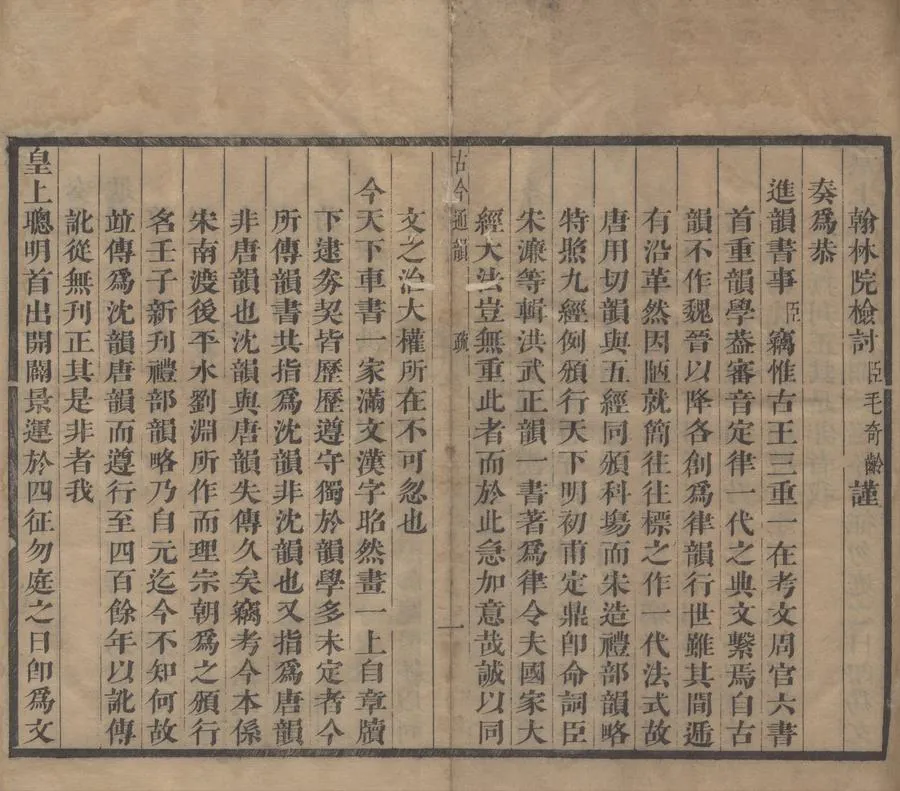 翰林院檢討臣毛奇齡謹
奏爲恭
進韻書事臣竊惟古王三重一在考文周官六書
首重韻學葢審音定律一代之典文繫焉自古
韻不作魏晉以降各創爲律韻行世雖其間遞
有沿革然因陋就簡往往標之作一代法式故
唐用切韻與五經同頒科塲而宋造禮部韻略
特照九經例頒行天下明初甫定鼎卽命詞臣
宋濂等輯洪武正韻一書著爲律令夫國家大
經大法豈無重此者而於此急加意哉誠以同
古今通韻 疏 一
文之治大權所在不可忽也
今天下車書一家滿文漢字昭然畫一上自章牘
下逮劵契皆歷歷遵守獨於韻學多未定者今
所傳韻書共指爲沈韻非沈韻也又指爲唐韻
非唐韻也沈韻與唐韻失傳久矣竊考今本係
宋南渡後平水劉淵所作而理宗朝爲之頒行
名壬子新刋禮部韻略乃自元迄今不知何故
竝傳爲沈韻唐韻而遵行至四百餘年以訛傳
訛從無刋正其是非者我
皇上聰明首出開闢景運於四征勿庭之日卽爲文